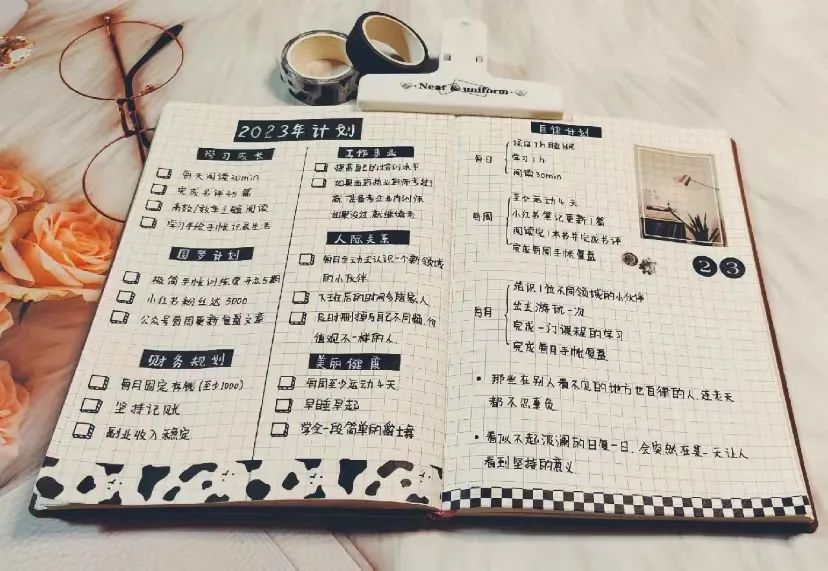 Neat & uniform
2023年计划
学习成长
每天阅读30min
完成书评45篇
高效/效率主题阅读
学习手绘手帐记录生活
圆梦计划
极简手帐训练营开办5期
小红书粉丝达5000
公众号每周更新复盘文章
财务规划
每月固定存钱(至少1000)
坚持记账
副业收入稳定
工作事业
提高自己的培训水平
如果执业药师考过
就准备考企业内训师
如果没过,就继续考
人际关系
每月主动去认识一个新领域
的小伙伴
下班后的时间多陪家人
及时删掉与自己不同频,价
值观不一样的人.
美丽健康
每周至少运动4天
早睡早起
学会一段简单的爵士舞
自律计划
每日
睡眠
学习1h
阅读30min
每周
至少运动4天
小红书笔记更新1篇
阅读完1本书并完成书评
完成每周手帐复盘
23
每月
结识1位不同领域的小伙伴
出去游玩一次
完成一门课程的学习
完成每月手帐复盘
• 那些在别人看不见的地方也自律的人,连老天
都不忍辜负
• 看似不起波澜的日复一日,会突然在某一天让人
看到坚持的意义